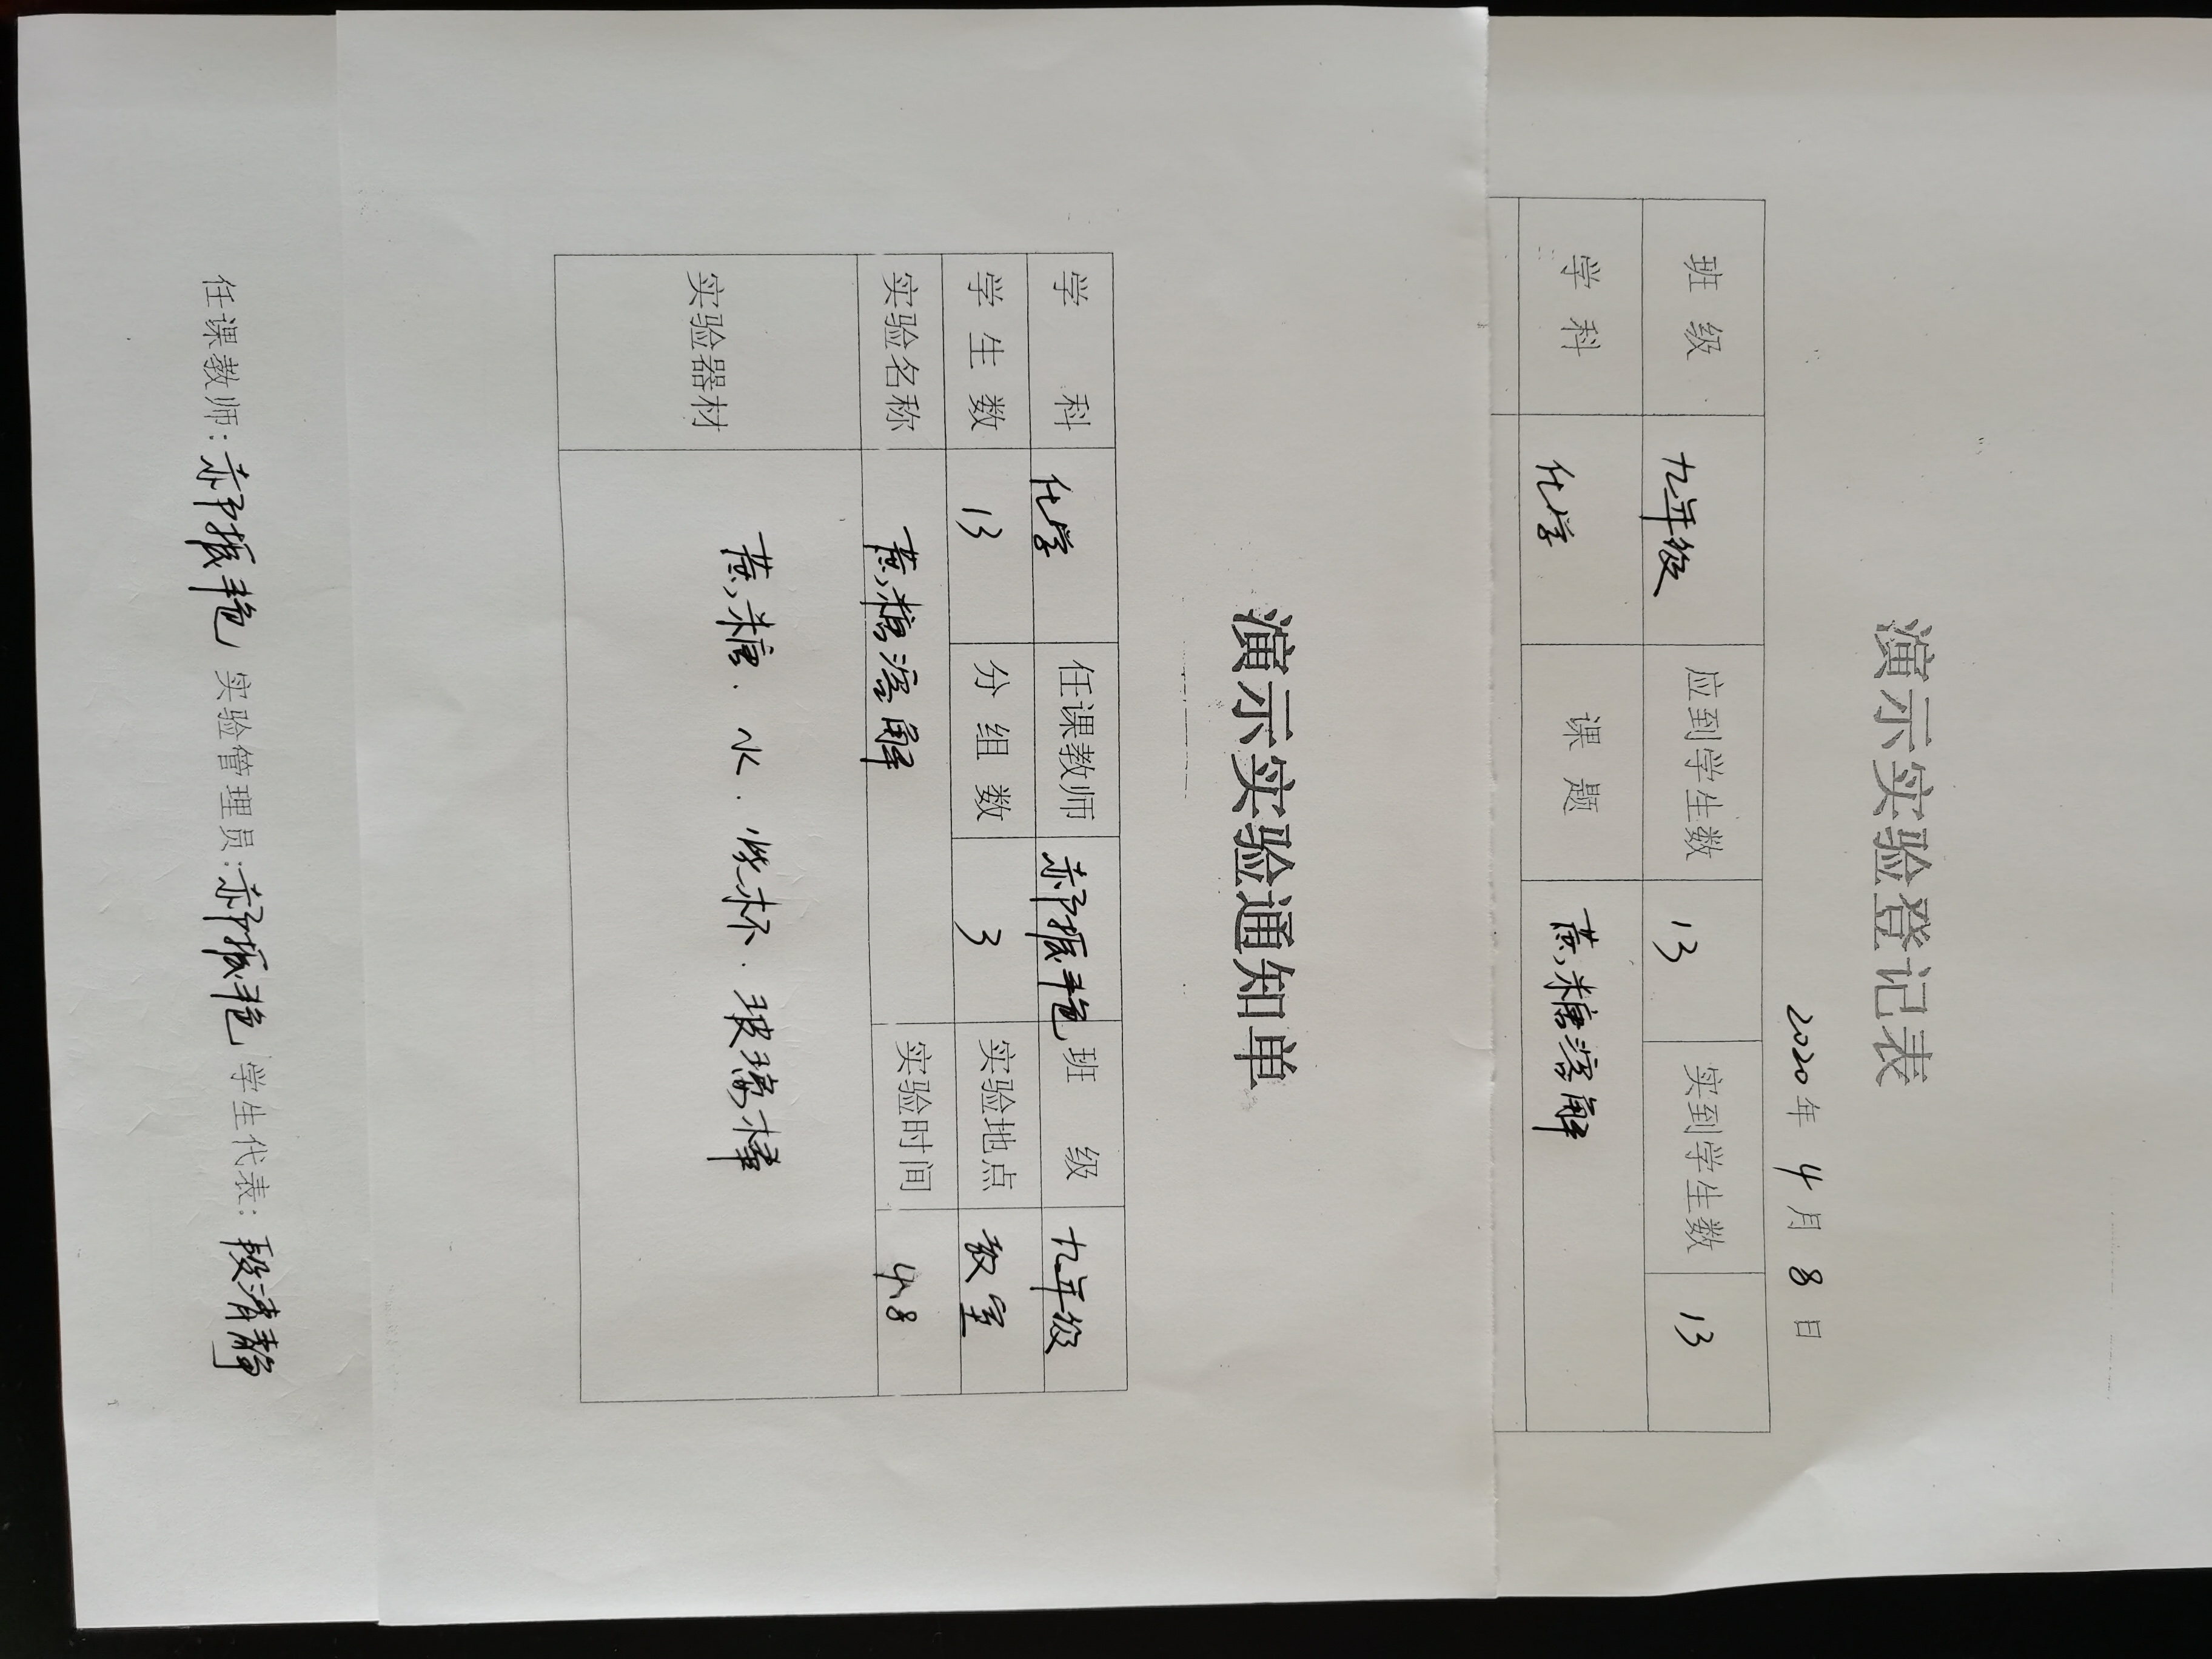 演示实验登记表
2020年 4月 8日
班级 九年级 应到学生数 13 实到学生数 13
学科 化学 课题 蔗糖溶解
演示实验通知单
学科 化学 任课教师 郝振艳 班级 九年级
学生数 13 分组数 3 实验地点 教室
实验名称 蔗糖溶解 实验时间 4.8
实验器材 蔗糖.水.烧杯.玻璃棒
任课教师:郝振艳 实验管理员:郝振艳 学生代表:段清静